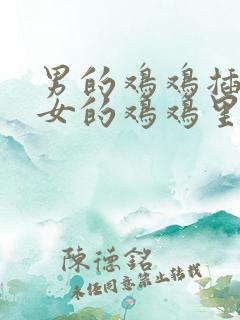 男的鸡鸡插
女的鸡鸡里
陳德銘
未经同意禁止转载